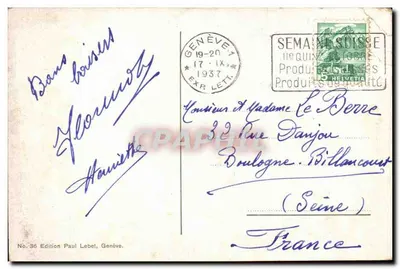 Bons baisers
Henriette
GENÈVE 1
19-20
17-IX
1937
EXP. LETT.
SEMAINE SUISSE
Produits
Produits de qualité
HELVETIA
Monsieur et Madame Le Berre
33 Rue Danjou
Boulogne-Billancourt
(Seine)
France
CARTE POSTALE
No. 36 Edition Paul Lebet, Genève.